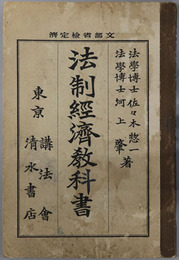 文部省檢定濟
法學博士 佐々木惣一
法學博士 河上肇 著
法制經濟教科書
東京 講法會
清水書店